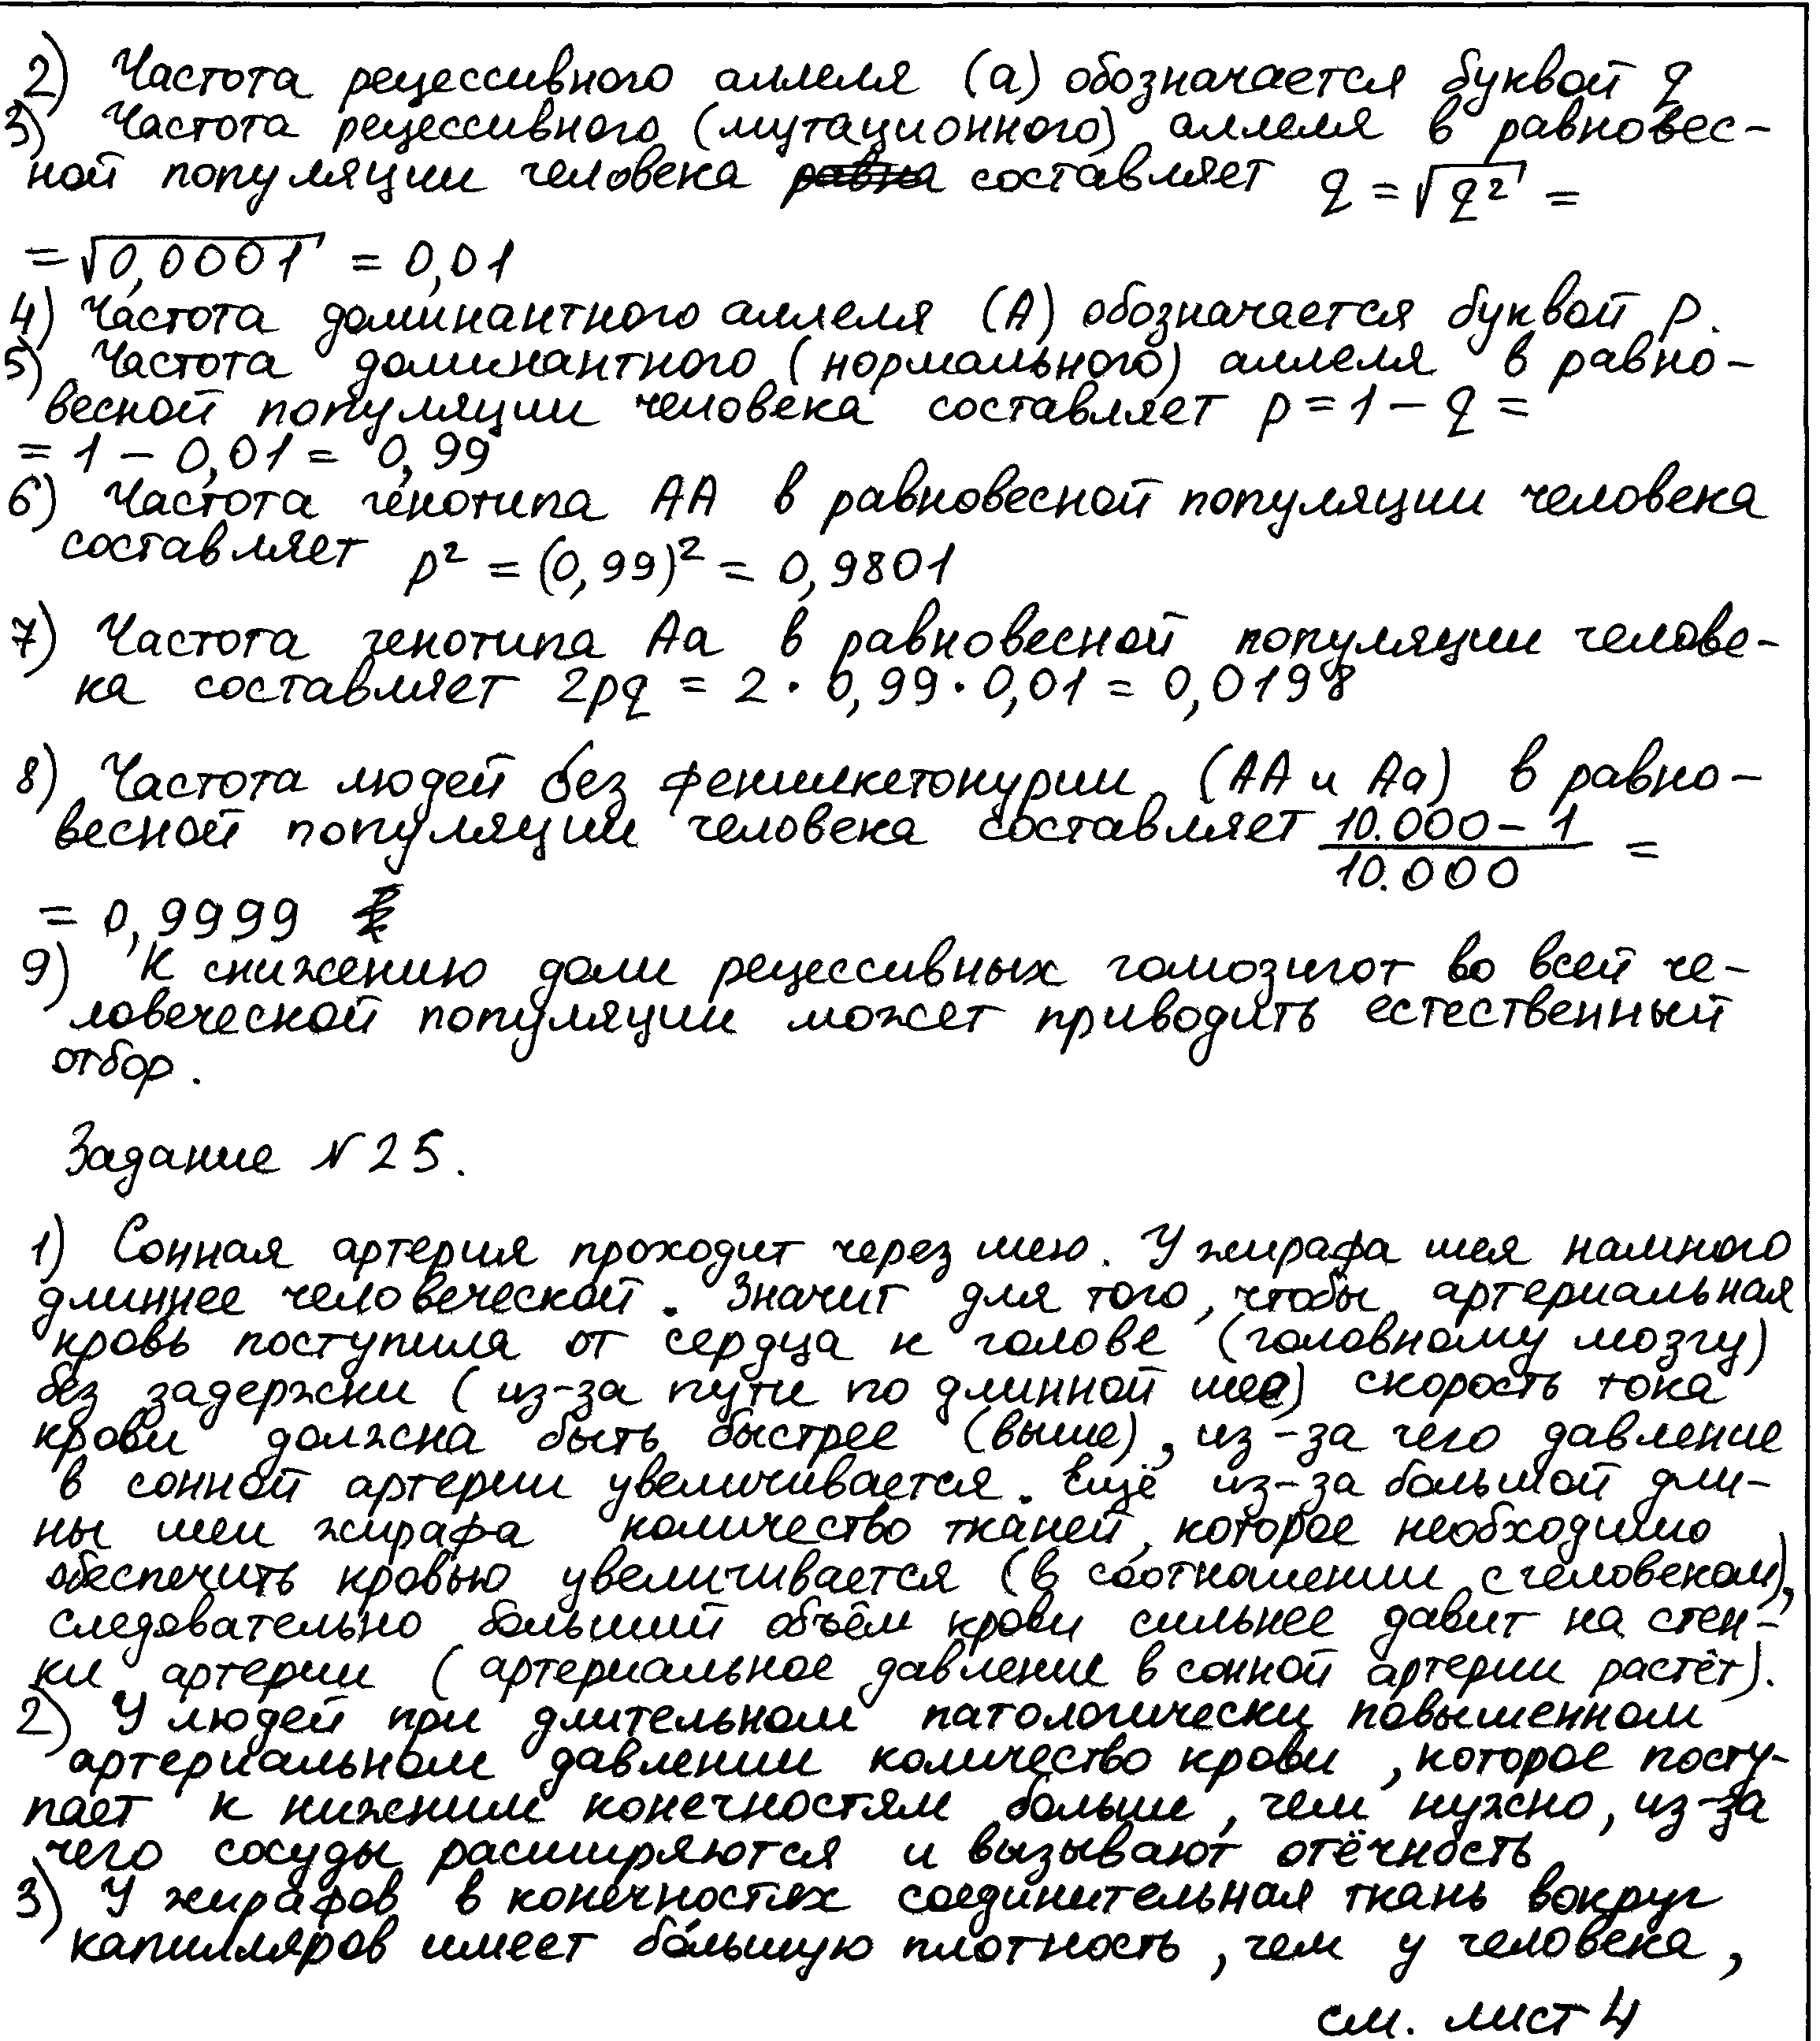 2) Частота рецессивного аллеля (а) обозначается буквой q
3) Частота рецессивного (мутационного) аллеля в равновес-
ной популяции человека равна составляет q = √q² =
= √0,0001 = 0,01
4) Частота доминантного аллеля (А) обозначается буквой p.
5) Частота доминантного (нормального) аллеля в равно-
весной популяции человека составляет p = 1 – q =
= 1 – 0,01 = 0,99
6) Частота генотипа АА в равновесной популяции человека
составляет p² = (0,99)² = 0,9801
7) Частота генотипа Аа в равновесной популяции челове-
ка составляет 2pq = 2 · 0,99 · 0,01 = 0,0198
8) Частота людей без фенилкетонурии (АА и Аа) в равно-
весной популяции человека составляет 10.000 – 1 / 10.000 =
= 0,9999
9) К снижению доли рецессивных гомозигот во всей че-
ловеческой популяции может приводить естественный
отбор.
Задание №25.
1) Сонная артерия проходит через шею. У жирафа шея намного
длиннее человеческой. Значит для того, чтобы артериальная
кровь поступила от сердца к голове (головному мозгу)
без задержки (из-за пути по длинной шее) скорость тока
крови должна быть быстрее (выше), из-за чего давление
в сонной артерии увеличивается. Ещё из-за большой дли-
ны шеи жирафа количество тканей, которое необходимо
обеспечить кровью увеличивается (в соотношении с человеком),
следовательно больший объём крови сильнее давит на стен-
ки артерии (артериальное давление в сонной артерии растёт).
2) У людей при длительном патологически повышенном
артериальном давлении количество крови, которое посту-
пает к нижним конечностям больше, чем нужно, из-за
чего сосуды расширяются и вызывают отёчность
3) У жирафов в конечностях соединительная ткань вокруг
капилляров имеет бо́льшую плотность, чем у человека,
см. лист 4